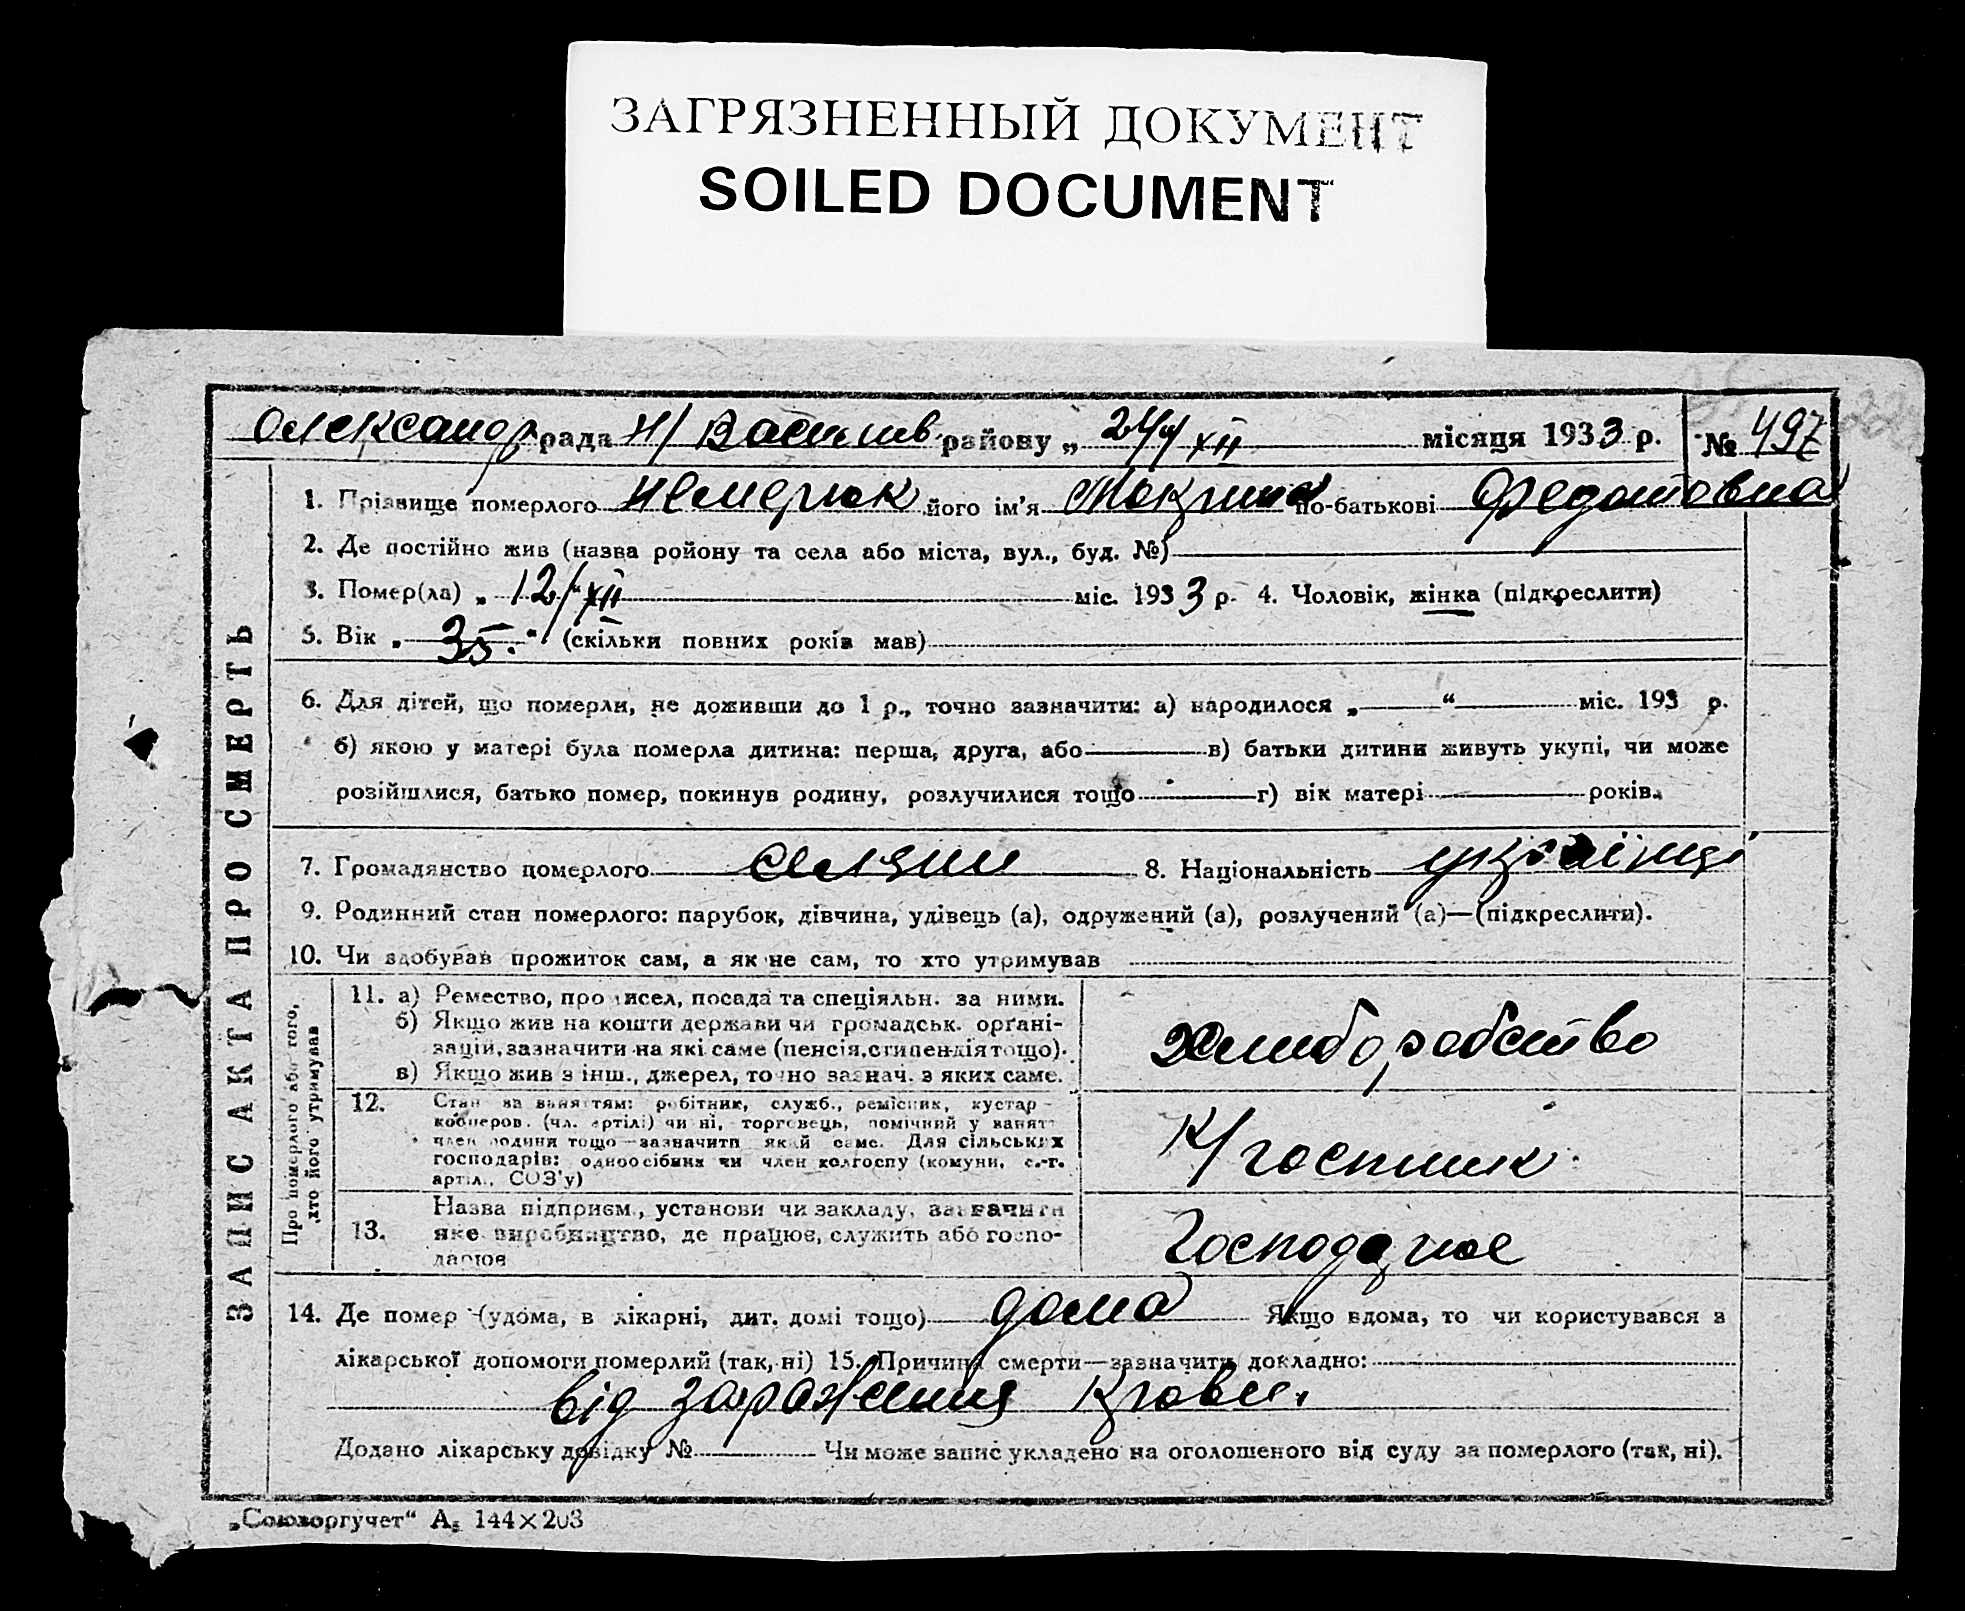 ЗАГРЯЗНЕННЫЙ ДОКУМЕНТ
SOILED DOCUMENT
Олександр рада Н/Васились району „ 24/XII місяця 1933 р. № 497
1. Прізвище померлого Немерюк його ім’я Мокрина по-батькові Федотовна
2. Де постійно жив (назва ройону та села або міста, вул., буд. №)
3. Помер(ла) „ 12/XII міс. 1933 р. 4. Чоловік, жінка (підкреслити)
5. Вік „ 35. “ (скільки повних років мав)
6. Для дітей, що померли, не доживши до 1 р., точно зазначити: а) народилося „ “ міс. 193 р.
б) якою у матері була померла дитина: перша, друга, або в) батьки дитини живуть укупі, чи може
розійшлися, батько помер, покинув родину, розлучилися тощо г) вік матері років.
7. Громадянство померлого селяни 8. Національність українці
9. Родинний стан померлого: парубок, дівчина, удівець (а), одружений (а), розлучений (а)—(підкреслити).
10. Чи здобував прожиток сам, а як не сам, то хто утримував
11. а) Ремество, промисел, посада та спеціяльн. за ними.
б) Якщо жив на кошти держави чи громадськ. орґані-
зацій, зазначити на які саме (пенсія, стипендія тощо).
в) Якщо жив з інш., джерел, точно зазнач. з яких саме.
хлиборобство
12. Стан за заняттям: робітник, служб., ремісник, кустар
кооперов. (чл. артілі) чи ні, торговець, помічний у занят.
член родини тощо—зазначити який саме. Для сільських
господарів: одноосібник чи член колгоспу (комуни, с.-г.
артіл., СОЗ’у)
К/госпник
13. Назва підприєм., установи чи закладу, зазначити
яке виробництво, де працює, служить або госпо-
дарює
Господарює
14. Де помер (удома, в лікарні, дит. домі тощо) дома Якщо вдома, то чи користувався з
лікарської допомоги померлий (так, ні) 15. Причина смерти—зазначить докладно:
від заражения крови.
Додано лікарську довідку № Чи може запис укладено на оголошеного від суду за померлого (так, ні).
„Союзоргучет“ А₅ 144×203
ЗАПИСАКТА ПРО СМЕРТЬ
Про померлого або того,
хто його утримував